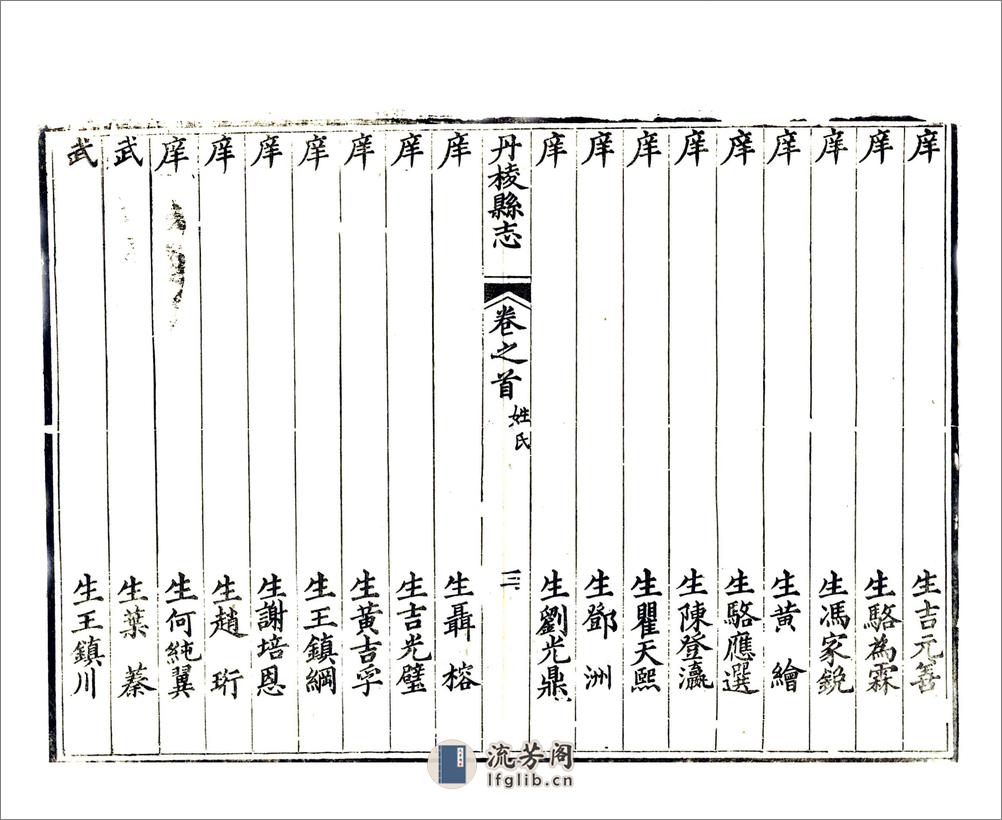 庠生吉元善
庠生駱為霖
庠生馮家銳
庠生黃繪
庠生駱應選
庠生陳登瀛
庠生瞿天熙
庠生鄧洲
庠生劉光鼎
丹棱縣志 卷之首 姓氏 三
庠生聶榕
庠生吉光璧
庠生黃吉孚
庠生王鎮綱
庠生謝培恩
庠生趙珩
庠生何純翼
武生葉蓁
武生王鎮川
流芳阁
lfglib.cn